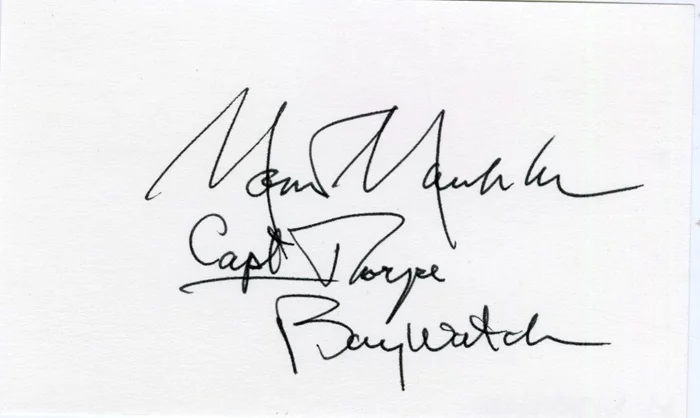 Monte Markham
Capt Thorpe
BayWatch